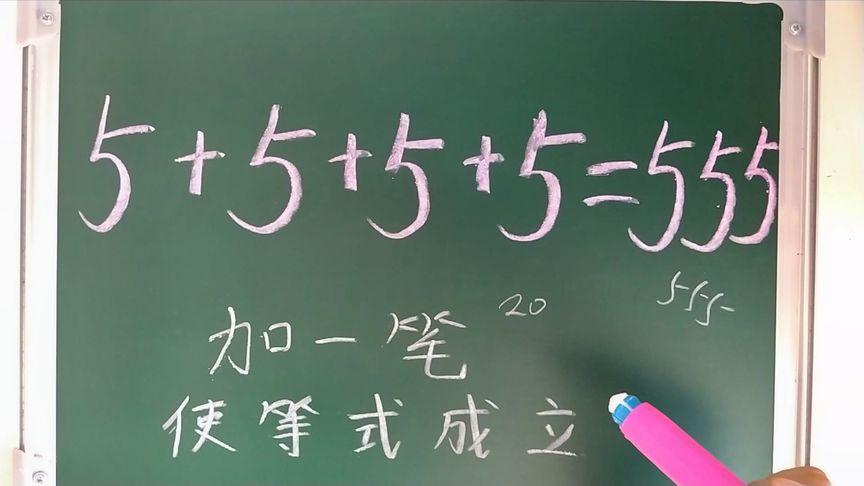 5+5+5+5=555
20 555
加一笔
使等式成立